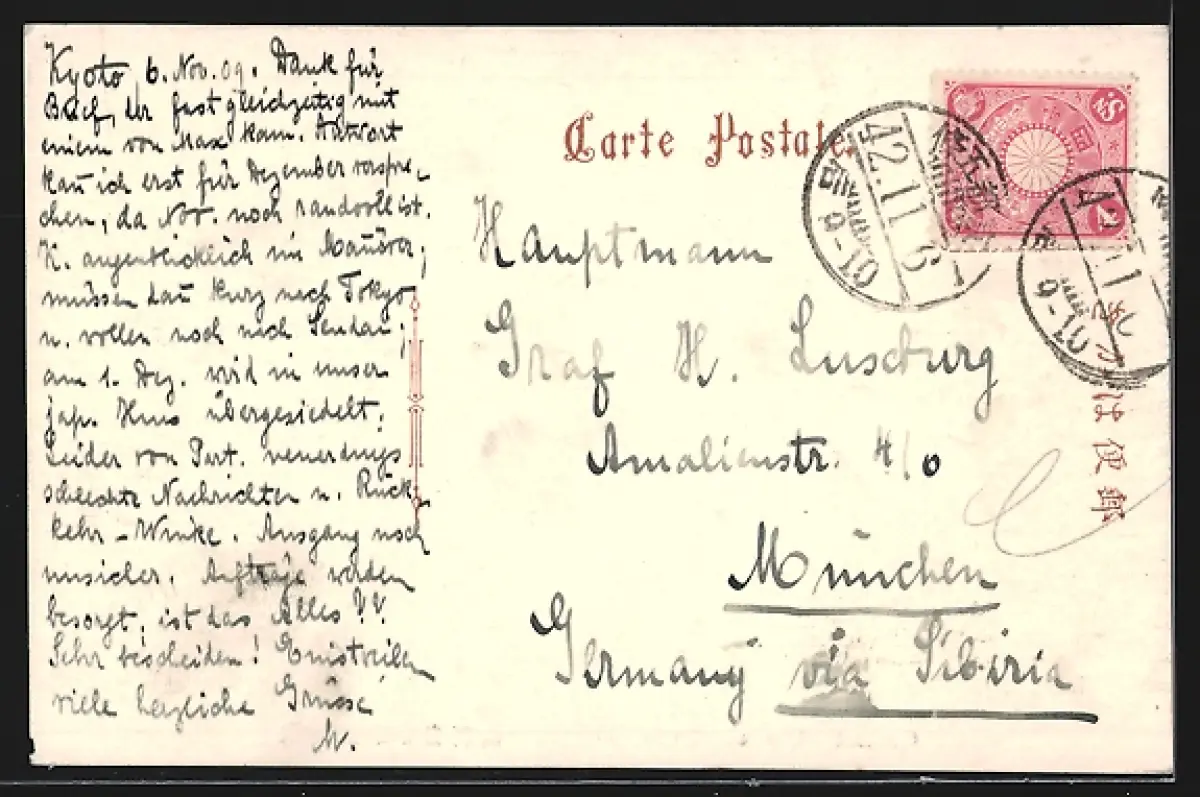 Kyoto, 6. Nov. 09. Dank für
Brief, der fast gleichzeitig mit
einem von Max kam. Antwort
kan̄ ich erst für Dezember verspre-
chen, da Nov. noch randvoll ist.
K. augenblicklich im Manöver;
müssen dan̄ kurz nach Tokyo
u. wollen noch nach Sendai;
am 1. Dez. wird in unser
jap. Haus übergesiedelt.
Leider von neuerdings
schlechte Nachrichten u. Rück-
kehr-Winke. Ausgang noch
unsicher. Aufträge werden
besorgt, ist das Alles??
Sehr bescheiden! Einstweilen
viele herzliche Grüsse
Carte Postale
Hauptmann
Graf H. Luxburg
Amalienstr. 4/0
München
Germany via Siberia
42.11.6
郵便は